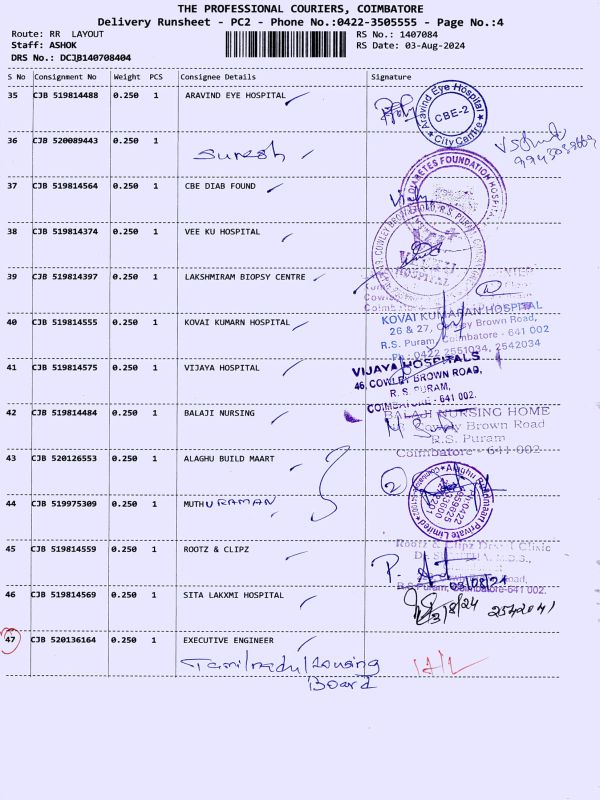 THE PROFESSIONAL COURIERS, COIMBATORE
Delivery Runsheet - PC2 - Phone No.:0422-3505555 - Page No.:4
Route: RR LAYOUT
RS No.: 1407084
Staff: ASHOK
RS Date: 03-Aug-2024
DRS No.: DCJB140708404
S No Consignment No Weight PCS Consignee Details Signature
35 CJB 519814488 0.250 1 ARAVIND EYE HOSPITAL
Aravind Eye Hospital
CBE-2
City Centre
36 CJB 520089443 0.250 1
Suresh
37 CJB 519814564 0.250 1 CBE DIAB FOUND
DIABETES FOUNDATION HOSPITAL
38 CJB 519814374 0.250 1 VEE KU HOSPITAL
COWLEY BROWN ROAD, R.S. PURAM,
HOSPITAL
39 CJB 519814397 0.250 1 LAKSHMIRAM BIOPSY CENTRE
40 CJB 519814555 0.250 1 KOVAI KUMARN HOSPITAL
KOVAI KUMARAN HOSPITAL
26 & 27, Cowley Brown Road,
R.S. Puram, Coimbatore - 641 002
Ph : 0422 2551034, 2542034
41 CJB 519814575 0.250 1 VIJAYA HOSPITAL
VIJAYA HOSPITALS
46, COWLEY BROWN ROAD,
R. S. PURAM,
COIMBATORE - 641 002.
42 CJB 519814484 0.250 1 BALAJI NURSING
BALAJI NURSING HOME
Cowley Brown Road
R.S. Puram
Coimbatore - 641 002
43 CJB 520126553 0.250 1 ALAGHU BUILD MAART
2
44 CJB 519975309 0.250 1 MUTHURAMAN
45 CJB 519814559 0.250 1 ROOTZ & CLIPZ
Rootz & Clipz Dental Clinic
R.S. Puram, Coimbatore-641 002.
03/08/24
46 CJB 519814569 0.250 1 SITA LAKXMI HOSPITAL
3/8/24 2542041
47 CJB 520136164 0.250 1 EXECUTIVE ENGINEER
Tamilnadu Housing
Board